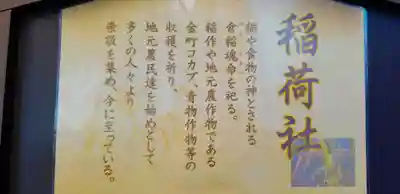 稲荷社
稲や食物の神とされる
倉稲魂命を祀る。
稲作や地元農作物である
金町コカブ、青物作物等の
収穫を祈り、
地元農民達を始めとして
多くの人々より
崇敬を集め、今に至っている。